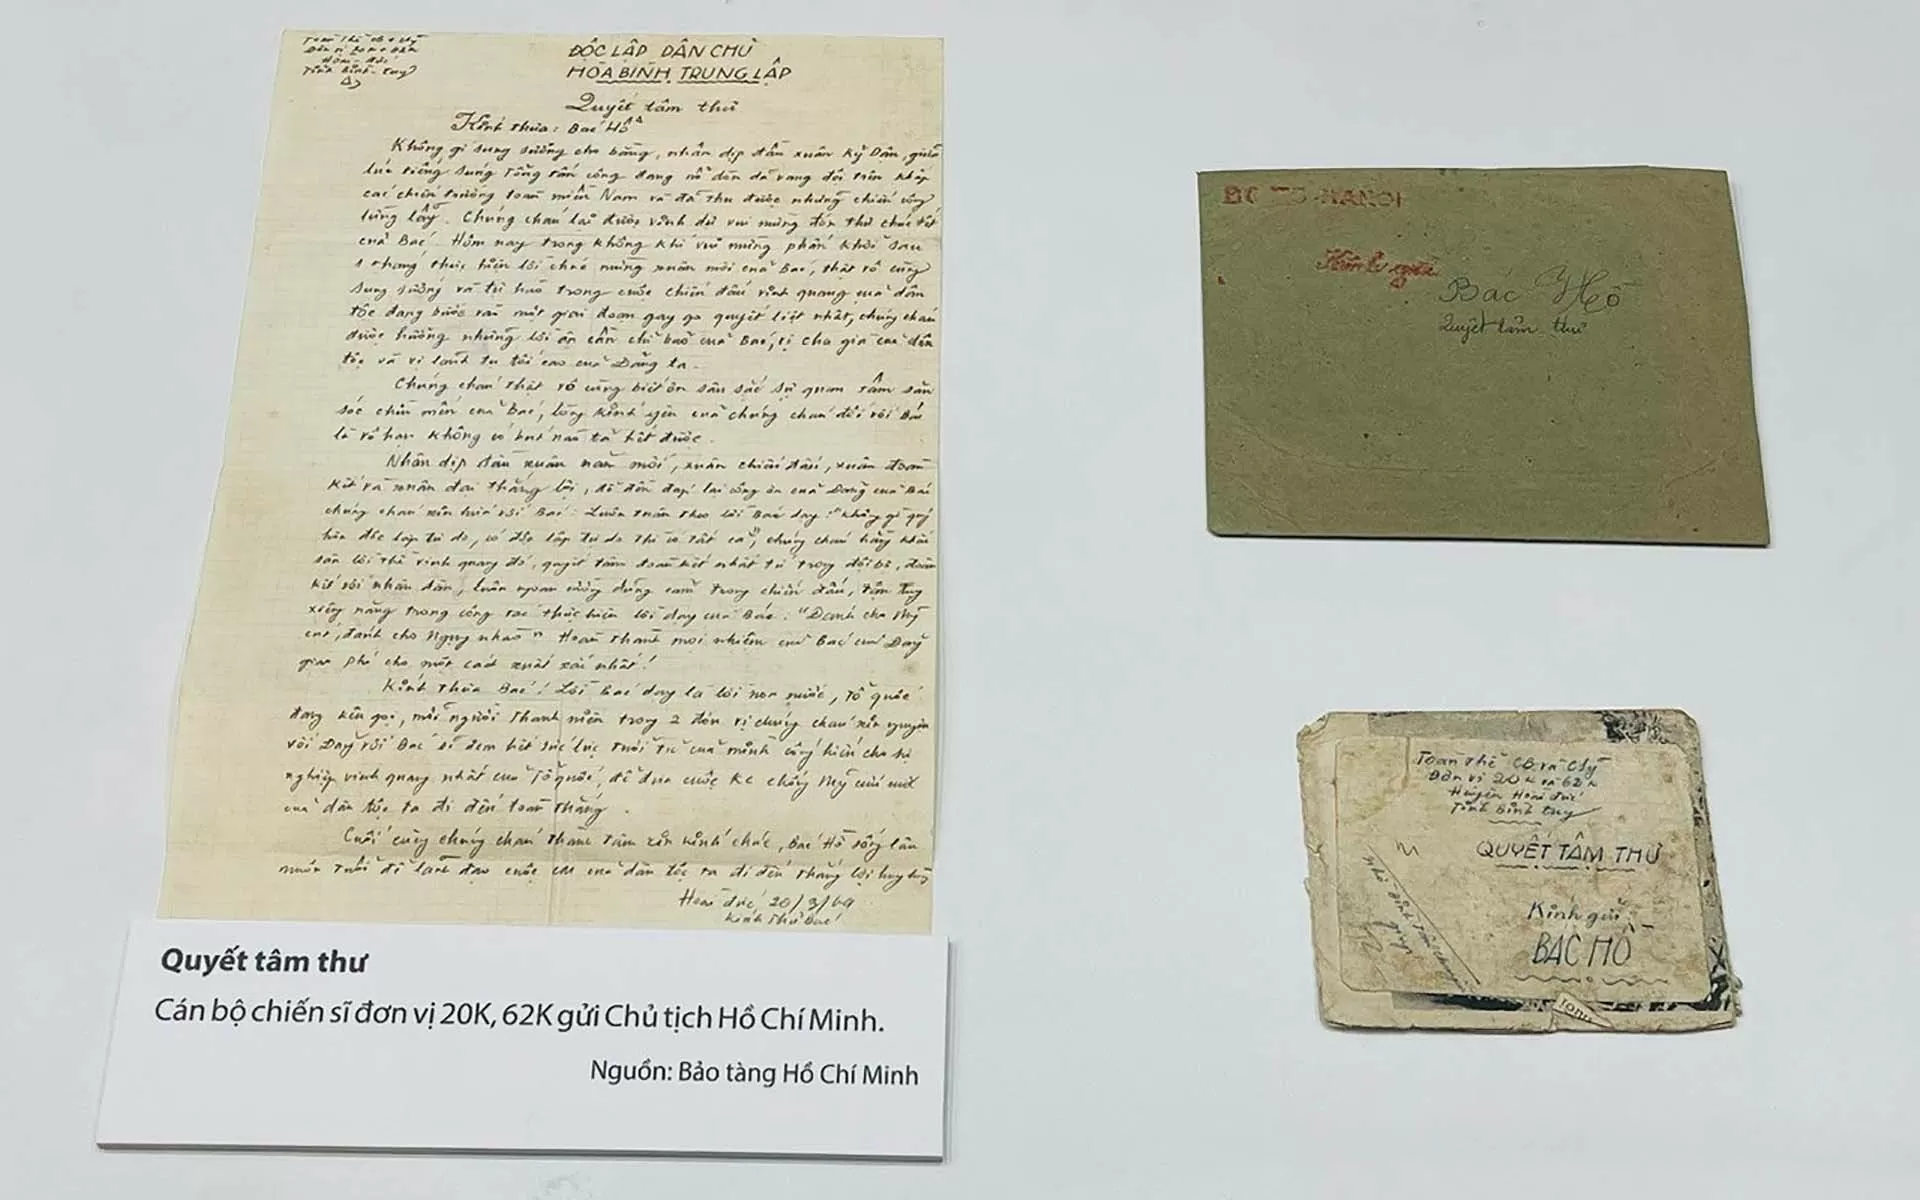 Toàn Thể CB và Chỹ
Đơn vị 20K + 62K
Hoài-đức
Tỉnh Bình-Tuy
ĐỘC LẬP DÂN CHỦ
HÒA BÌNH TRUNG LẬP
Quyết tâm thư
Kính thưa: Bác Hồ
Không gì sung sướng cho bằng, nhân dịp đầu xuân Kỷ Dậu, giữa
lúc tiếng súng Tổng tấn công đang nổ dòn dã vang dội trên khắp
các chiến trường toàn miền Nam và đã thu được những chiến công
lừng lẫy. Chúng cháu lại được vinh dự vui mừng đón thư chúc tết
của Bác. Hôm nay trong không khí vui mừng phấn khởi sau
1 tháng thực hiện lời chúc mừng xuân mới của Bác, thật vô cùng
sung sướng và tự hào trong cuộc chiến đấu vinh quang của dân
tộc đang bước vào một giai đoạn gay go quyết liệt nhất, chúng cháu
được hưởng những lời ân cần chỉ bảo của Bác, vị cha già của dân
tộc và vị lãnh tụ tối cao của Đảng ta.
Chúng cháu thật vô cùng biết ơn sâu sắc sự quan tâm săn
sóc chìu mến của Bác, lòng kính yêu của chúng cháu đối với Bác
là vô hạn không có bút nào tả hết được.
Nhân dịp đầu xuân năm mới, xuân chiến đấu, xuân đoàn
kết và xuân đại thắng lợi, để đền đáp lại công ơn của Đảng của Bác
chúng cháu xin hứa với Bác: Luôn tuân theo lời Bác dạy: "Không gì quý
hơn độc lập tự do, có độc lập tự do thì có tất cả", chúng cháu hằng khắc
sâu lời thề vinh quang đó, quyết tâm đoàn kết nhất trí trong nội bộ, đoàn
kết với nhân dân, luôn ngoan cường dũng cảm trong chiến đấu, tận tụy
xiêng năng trong công tác thực hiện lời dạy của Bác: "Đánh cho Mỹ
cút, đánh cho Ngụy nhào" Hoàn thành mọi nhiệm của Bác của Đảng
giao phó cho một cách xuất sắc nhất!
Kính thưa Bác! Lời Bác dạy là lời non nước, Tổ quốc
đang kêu gọi, mỗi người thanh niên trong 2 đơn vị chúng cháu xin nguyện
với Đảng với Bác sẽ đem hết sức lực tuổi trẻ của mình cống hiến cho sự
nghiệp vinh quang nhất của Tổ quốc, để đưa cuộc KC chống Mỹ cứu nước
của dân tộc ta đi đến toàn thắng.
Cuối cùng chúng cháu thành tâm xin kính chúc, Bác Hồ sống lâu
muôn tuổi để lãnh đạo cuộc CM của dân tộc ta đi đến thắng lợi
Hoài đức 20/3/69
Kính thư Bác
Quyết tâm thư
Cán bộ chiến sĩ đơn vị 20K, 62K gửi Chủ tịch Hồ Chí Minh.
Nguồn: Bảo tàng Hồ Chí Minh
HANOI
Kính gửi
Bác Hồ
Quyết tâm thư
Toàn Thể CB và Chỹ
Đơn vị 20K và 62K
Huyện Hoài đức
Tỉnh Bình Tuy
QUYẾT TÂM THƯ
Kính gửi
BÁC HỒ